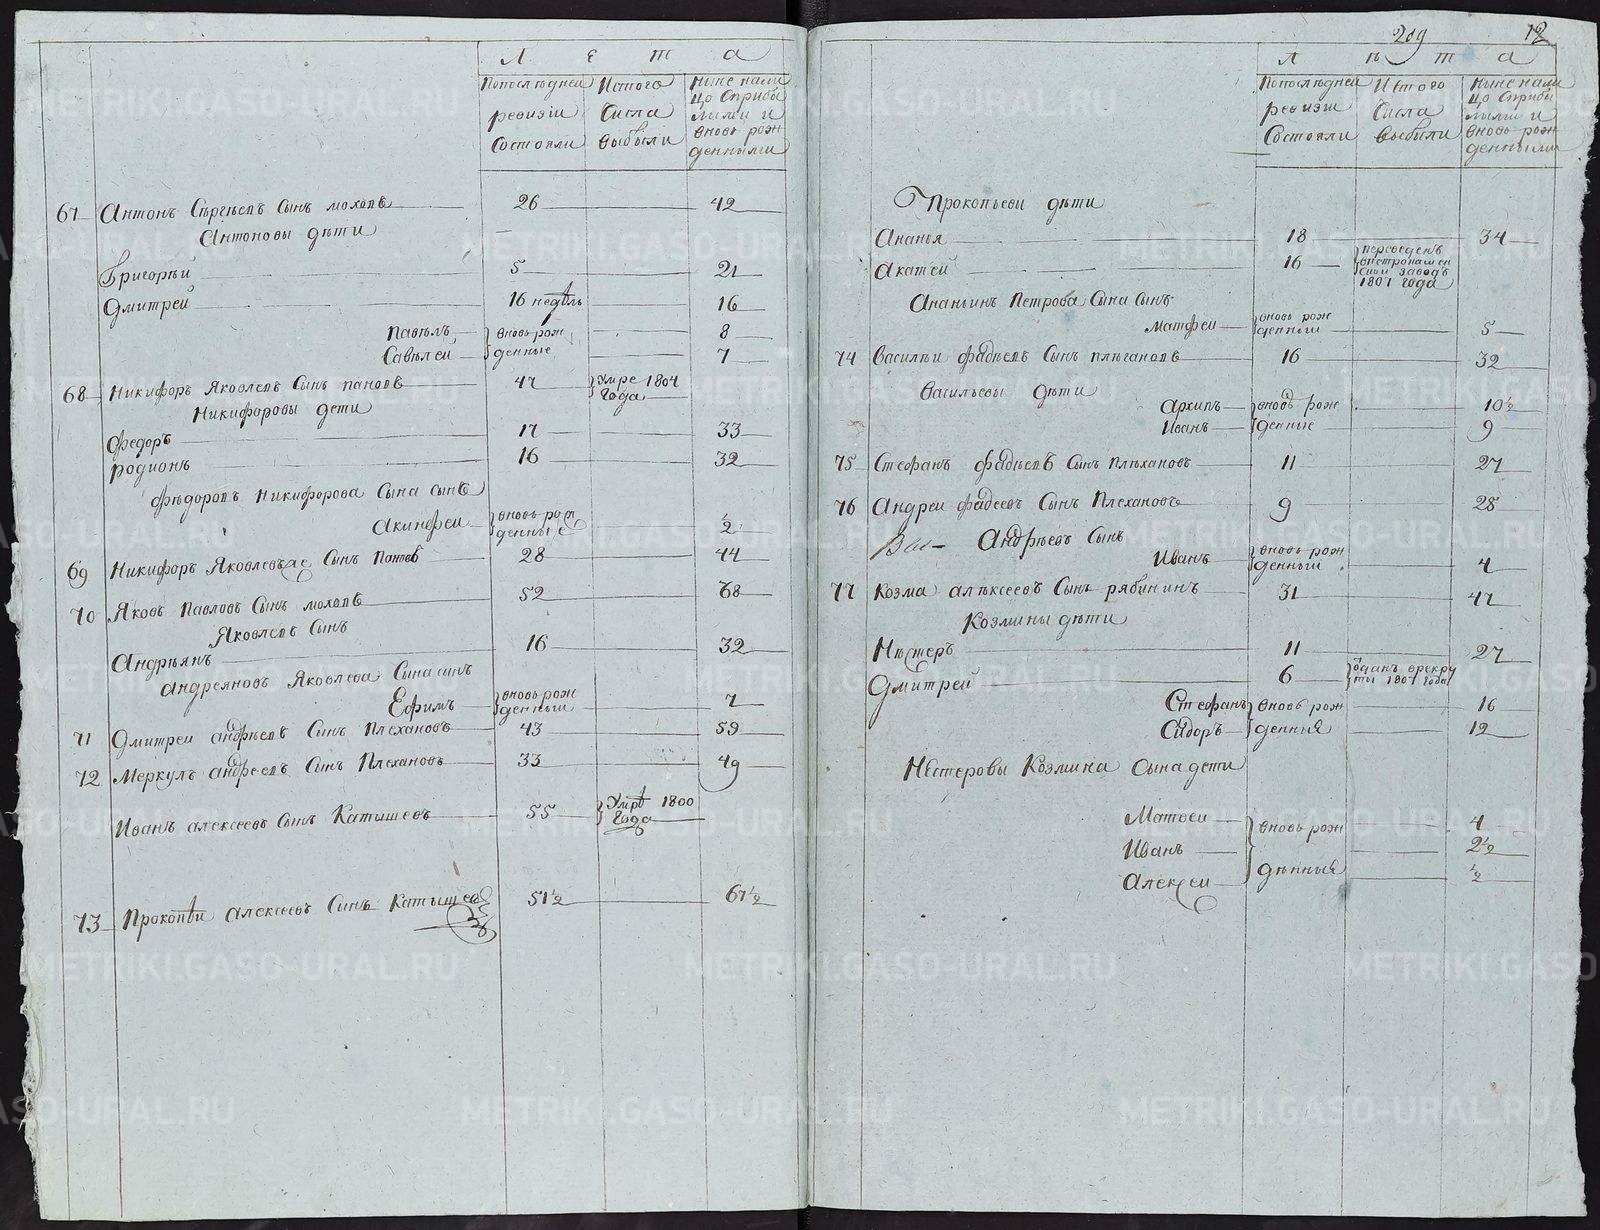 Л е т а
По последней ревизии состояли
Из того числа выбыли
Ныне на лицо с прибылыми и вновь рожденными
67 Антонъ Сергѣевъ Сынъ моховъ 26 42
Антоновы дѣти
Григорѣй 5 21
Дмитрей 16 недѣль 16
Павѣлъ вновь рож 8
Савѣлей денные 7
68 Никифоръ Яковлевъ Сынъ пановъ 47 Умре 1804 года
Никифоровы дети
Федоръ 17 33
родионъ 16 32
Фѣдоровъ Никифорова Сына сынъ
Акинфеи вновь рож денные ½
69 Никифоръ Яковлевъ же Сынъ Пановъ 28 44
70 Яковъ Павловъ Сынъ моховъ 52 68
Яковлевъ Сынъ
Андрѣянъ 16 32
андреяновъ Яковлева Сына сынъ
Ефимъ вновь рож денныи 7
71 Дмитреи андрѣевъ Сынъ Плехановъ 43 59
72 Меркулъ андреевъ Сынъ Плехановъ 33 49
Иванъ алексеевъ сынъ Катышевъ 55 Умрѣ 1800 года
73 Прокопѣи алексеевъ Сынъ Катышевъ 51½ 67½
209 12
Л ѣ т а
По последней ревизии состояли
Из того числа выбыли
Ныне на лицо с прибылыми и вновь рожденными
Прокопьевы дѣти
Ананья 18 34
Акатей 16 переведенъ
1807 года
Ананьинъ Петрова Сына Сынъ
Матфеи вновь рож денныи 5
74 Василѣи фадѣевъ Сынъ плѣхановъ 16 32
Васильевы дѣти
Архипъ вновь рож 10½
Иванъ денные 9
75 Стефанъ фадѣевъ Сынъ Плѣхановъ 11 27
76 Андреи фадеевъ Сынъ Плехановъ 9 25
Андрѣевъ Сынъ
Иванъ вновь рож денныи 4
77 Козма алѣксеевъ Сынъ рябининъ 31 47
Козмины дѣти
Нѣстеръ 11 27
Дмитрей 6 Отданъ в рекруты 1807 года
Стефанъ вновь рож 16
Сидоръ денныя 12
Нестеровы Козмина Сына дети
Матвеи вновь рож 4
Иванъ 2½
Алексеи дѣнныя ½
METRIKI.GASO-URAL.RU